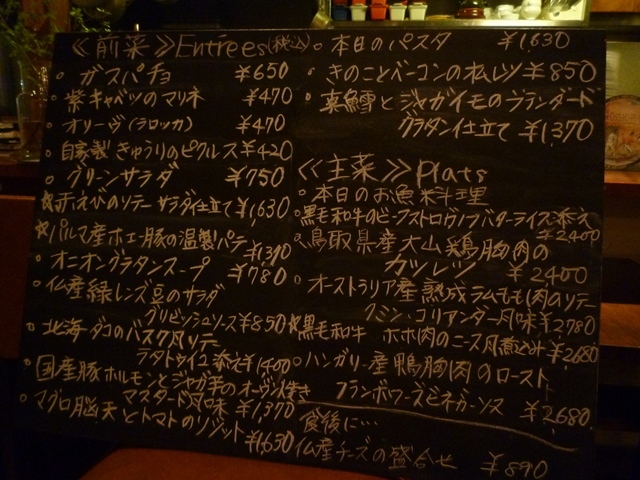 ≪前菜≫ Entrées(税込)
・ガスパチョ ¥650
・紫キャベツのマリネ ¥470
・オリーヴ(ラロッカ) ¥470
・自家製きゅうりのピクルス ¥420
・グリーンサラダ ¥750
★赤えびのソテー サラダ仕立て ¥1,630
★パルマ産ホエー豚の温製パテ ¥1,310
・オニオングラタンスープ ¥780
・仏産緑レンズ豆のサラダ
グリビッシュソース ¥850
・北海ダコのバスク風ソテー
ラタトゥイユ添え ¥1400
・国産豚ホルモンとジャガ芋のオーヴン焼き
マスタード風味 ¥1,370
・マグロ脳天とトマトのリゾット ¥1,630
・本日のパスタ ¥1,630
・きのことベーコンのオムレツ ¥850
・真鱈とジャガイモのブランダード
グラタン仕立て ¥1,370
≪主菜≫ Plats
・本日のお魚料理
・黒毛和牛のビーフストロガノフ バターライス添え
¥2400
・鳥取県産大山鶏胸肉の
カツレツ ¥2400
・オーストラリア産熟成ラムもも肉のソテー
クミン・コリアンダー風味 ¥2780
★黒毛和牛 ホホ肉のニース風煮込み ¥2680
・ハンガリー産鴨胸肉のロースト
フランボワーズビネガーソース ¥2,680
食後に…
仏産チーズの盛合せ ¥890